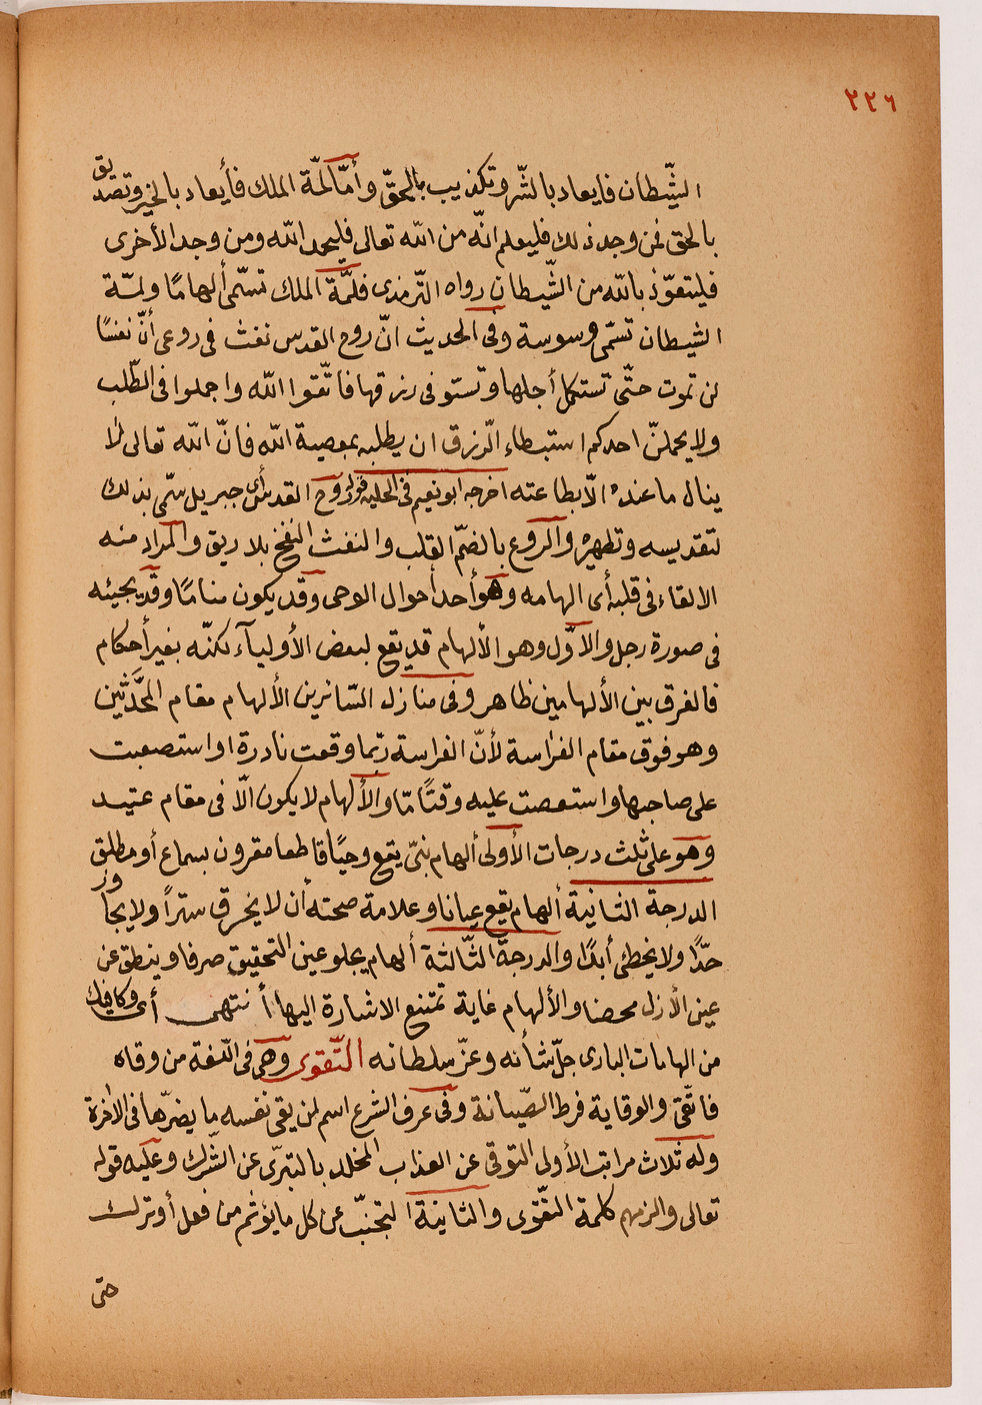 ٢٢٦
الشّيطان فايعاد بالشّر وتكذيب بالحقّ وأمّا لمّة الملك فأيعاد بالخير وتصديق
بالحق فمن وجد ذلك فليعلم انّه من الله تعالى فليحمد الله ومن وجد الأخرى
فليتعوّذ بالله من الشّيطان رواه التّرمذى فلمّة الملك تسمّى ألهامًا ولمّة
الشيطان تسمّى وسوسة وفى الحديث انّ روح القدس نفث فى روعى أنّ نفسًا
لن تموت حتّى تستكمل أجلها وتستوفى رزقها فاتّقوا الله واجملوا فى الطّلب
ولا يحملنّ احدكم استبطاء الّرزق ان يطلبه بمعصية الله فانّ الله تعالى لا
ينال ما عنده الّا بطاعته اخرجه ابو نعيم فى الحليه فقوله روح القدس أى جبريل سمّى بذلك
لتقديسه وتطهيره والروع بالضمّ القلب والنفث النفخ بلا ريق والمراد منه
الالقاء فى قلبه أى الهامه وهو أحد أحوال الوحى وقد يكون منامًا وقد يجيئه
فى صورة رجل والاوّل وهو الألهام قد يقع لبعض الأوليآء لكنّه بغير أحكام
فالفرق بين الألهامين ظاهر وفى منازل السّائرين الألهام مقام المحَدَّثين
وهو فوق مقام الفراسة لأنّ الفراسة ربّما وقعت نادرة او استصعبت
على صاحبها واستعصت عليه وقتًا مّا والألهام لا يكون الّا فى مقام عتيد
وهو على ثلث درجات الأولى ألهام نبىّ يقع وحيًا قاطعا مقرون بسماع أو مطلق
الدرجة الثانية ألهام يقع عيانا وعلامة صحته أن لا يخرق سترًا ولا يجاوز
حدًّا ولا يخطئ أبدًا والدرجة الثّالثة ألهام يجلو عين التحقيق صرفا وينطق عن
عين الأزل محضا والألهام غاية تمتنع الاشارة اليها أنتهى أى وكافيك
من الهامات البارى جلّ شأنه وعزّ سلطانه التّقوى وهى فى اللّغة من وقاه
فاتّقى والوقاية فرط الصّيانة وفى عرف الشرع اسم لمن يقى نفسه ما يضرّها فى الآخرة
وله ثلاث مراتب الأولى التوقى عن العذاب المخلد بالتبرّى عن الشّرك وعليه قوله
تعالى والزمهم كلمة التّقوى والثانية التجنّب عن كل ما يؤثم من فعل أو ترك
حتّى